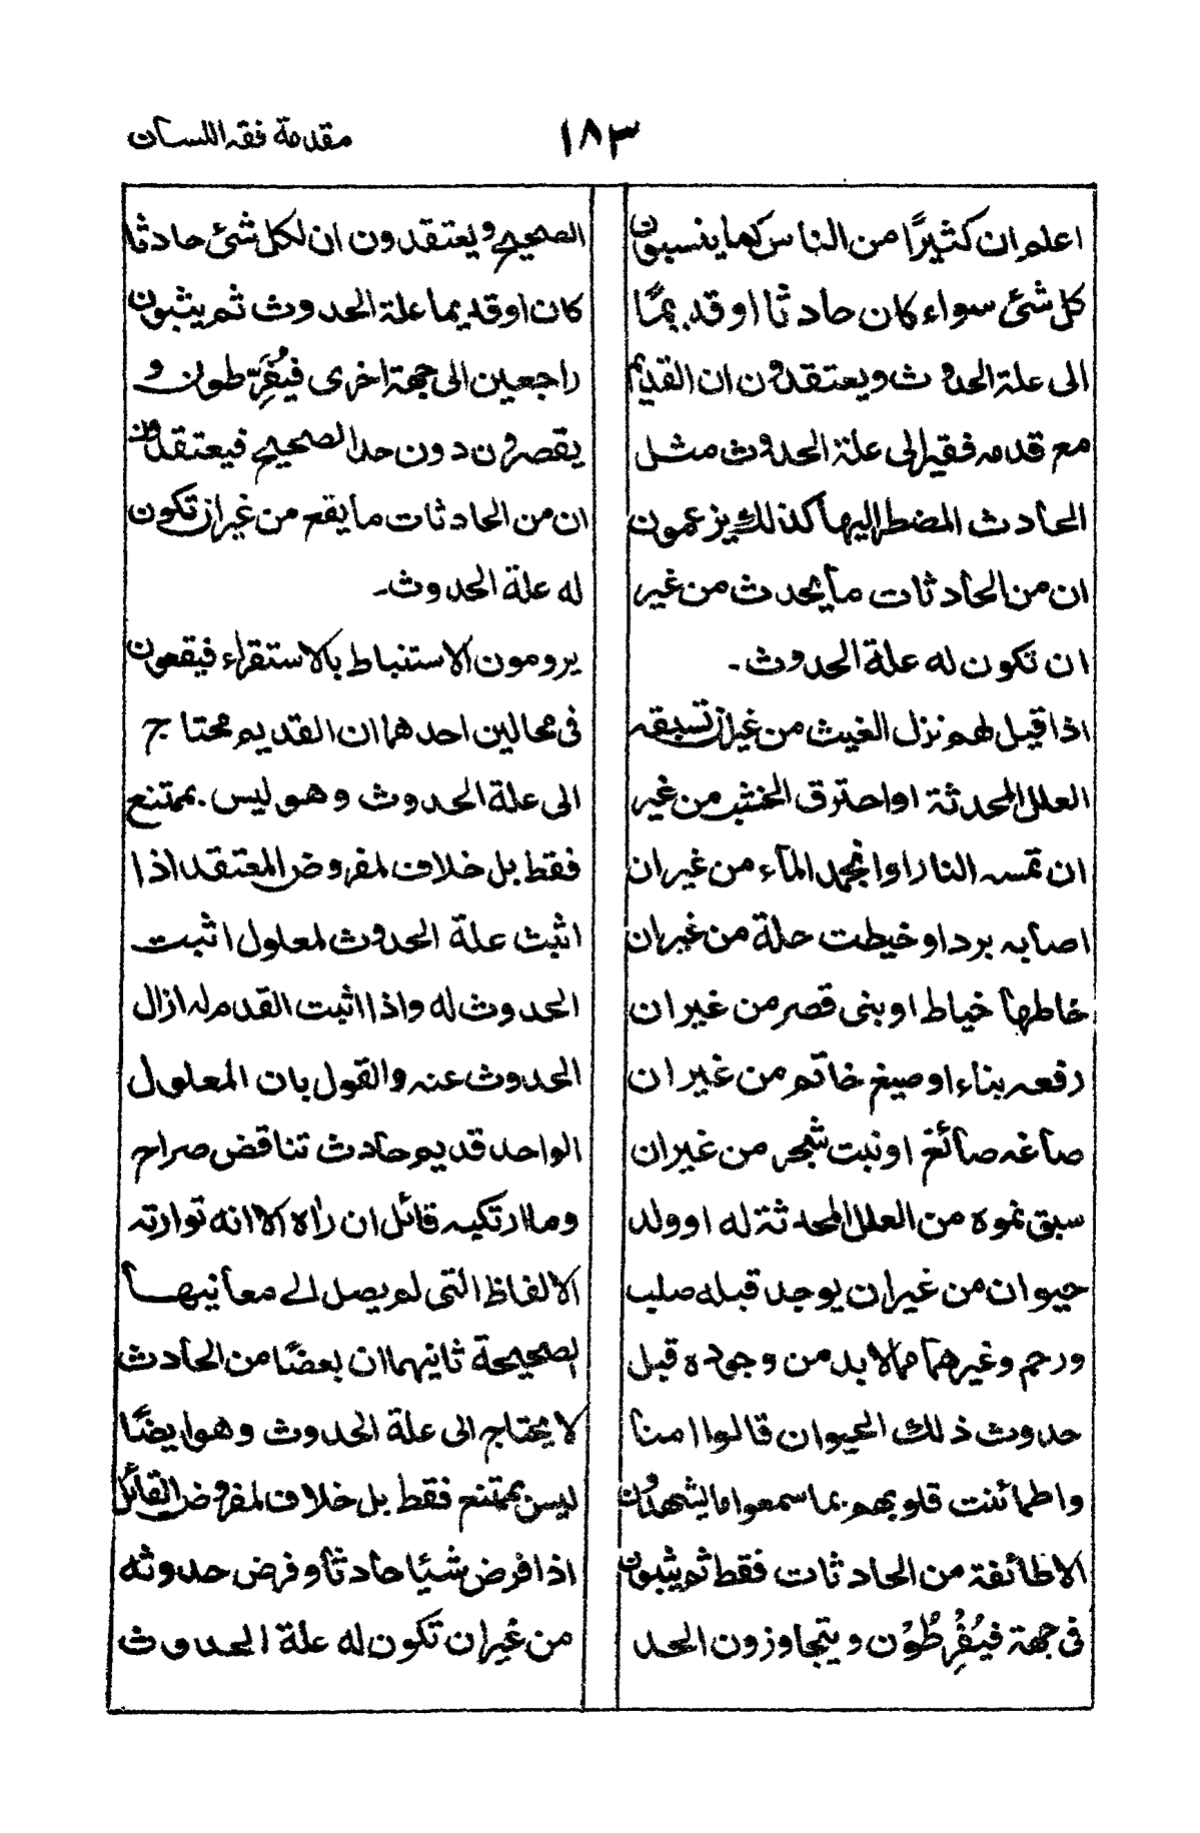 مقدمة فقه اللسان
١٨٣
اعلم ان كثيرًا من الناس كما ينسبون
كل شئ سواء كان حادثا او قديمًا
الى علة الحدوث ويعتقدون ان القديم
مع قدمه فقير الى علة الحدوث مثل
الحادث المضطر اليها كذلك يزعمون
ان من الحادثات ما يحدث من غير
ان تكون له علة الحدوث۔
اذا قيل لهم نزل الغيث من غير ان تسبقه
العلل المحدثة او احترق الخشب من غير
ان تمسه النار او انجمد الماء من غير ان
اصابه برد او خيطت حلة من غير ان
خاطها خياط او بنى قصر من غير ان
رفعه بناء او صيغ خاتم من غير ان
صاغه صائغ او نبت شجر من غير ان
سبق نموه من العلل المحدثة له او ولد
حيوان من غير ان يوجد قبله صلب
ورحم وغيرهما مما لا بد من وجوده قبل
حدوث ذلك الحيوان قالوا امنا
واطمائنت قلوبهم بما سمعوا ما يشهدون
الا طائفة من الحادثات فقط ثم يثبون
فى جهة فيُفْرِطُوْن ويتجاوزون الحد
الصحيح ويعتقدون ان لكل شئ حادثا
كان او قديما علة الحدوث ثم يثبون
راجعين الى جهة اخرى فيُفَرِّطون و
يقصرون دون حد الصحيح فيعتقدون
ان من الحادثات ما يقع من غير ان تكون
له علة الحدوث۔
يرومون الاستنباط بالاستقراء فيقعون
فى محالين احدهما ان القديم محتاج
الى علة الحدوث وهو ليس بممتنع
فقط بل خلاف لمفروض المعتقد اذا
اثبث علة الحدوث لمعلول اثبت
الحدوث له واذا اثبت القدم له ازال
الحدوث عنه والقول بان المعلول
الواحد قديم حادث تناقض صراح
وما ارتكبه قائل ان رأه الا انه توارته
الالفاظ التى لم يصل الى معانيها
الصحيحة ثانيهما ان بعضًا من الحادث
لا يحتاج الى علة الحدوث وهو ايضًا
ليس بممتنع فقط بل خلاف لمفروض القائل
اذا فرض شيئا حادثا وفرض حدوثه
من غير ان تكون له علة الحدوث